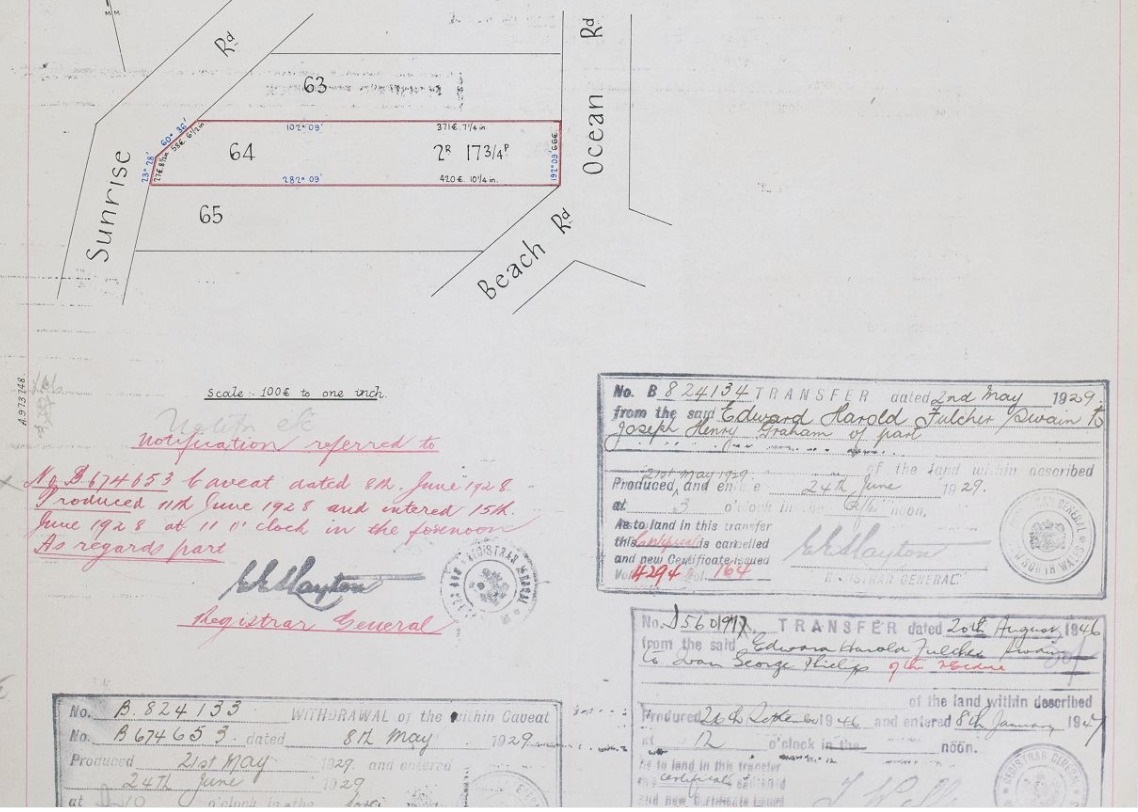 Rd
Rd
63
102° 09'
371f 7¼in
60° 36'
58f 6½in
64
2R 17 3/4P
192° 09'
66f
Ocean
23° 28'
282° 09'
420f 10¼in.
65
Sunrise
Beach Rd
A973748.
Scale :- 100f to one inch.
Notification referred to
No B674653 Caveat dated 8th June 1928
Produced 11th June 1928 and entered 15th
June 1928 at 11 o'clock in the forenoon
As regards part
Registrar General
No. B 824134 TRANSFER dated 2nd May 1929.
from the said Edward Harold Fulcher Swain to
Joseph Henry Graham of part
of the land within described
Produced 21st May 1929 and entered 24th June 1929.
at 3 o'clock in the noon.
As to land in this transfer
this Certificate is cancelled
and new Certificate issued
Vol. 4294 Fol. 164
REGISTRAR GENERAL
No. D560917. TRANSFER dated 20th August 1946
from the said Edward Harold Fulcher Swain
to Ivan George Philips of the residue
of the land within described
Produced 1946 and entered 8th January 1947
at 12 o'clock in the noon.
as to land in this transfer
certificate
and new Certificate issued
No. B.824133 WITHDRAWAL of the within Caveat
No. B674653. dated 8th May 1929
Produced 21st May 1929 and entered
24th June 1929
at o'clock in the